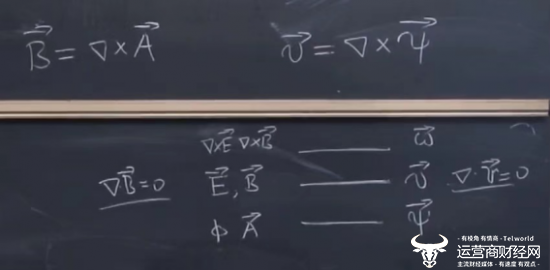 B⃗ = ∇ × A⃗    v⃗ = ∇ × ψ⃗
∇×E⃗ ∇×B⃗ —— ω⃗
∇B⃗=0    E⃗, B⃗ —— v⃗    ∇·v⃗=0
ϕ A⃗ —— ψ⃗
·有棱角 有情商·Telworld
运营商财经网
主流财经媒体·有速度 有观点·